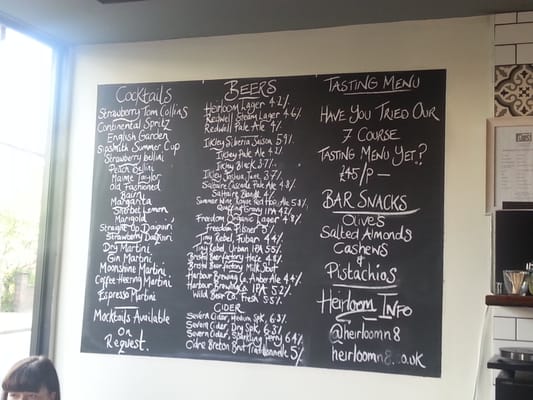 Cocktails
Strawberry Tom Collins
Continental Spritz
English Garden
Sipsmith Summer Cup
Strawberry Bellini
Peach Bellini
Maime Taylor
Old Fashioned
Margarita
Sherbet Lemon
Marigold
Straight Up Daiquiri
Strawberry Daiquiri
Dry Martini
Gin Martini
Moonshine Martini
Coffee Martini
Espresso Martini
Mocktails Available
On
Request.
BEERS
Heirloom Lager 4.2%
Redwell Steam Lager 4.6%
Redwell Pale Ale 4%
Ilkley Siberia Saison 5.9%
Ilkley Pale Ale 4.2%
Ilkley Black 3.7%
Ilkley Joshua Jane 3.7%
Saltaire Cascade Pale Ale 4.8%
Saltaire Blonde 4%
Summer Wine Lower Red Hop Ale 5.8%
IPA 4.2%
Freedom Organic Lager 4.8%
Freedom Pilsner 5%
Tiny Rebel, Fubar 4.4%
Tiny Rebel, Urban IPA 5.5%
Bristol Beer factory Hefe 4.8%
Bristol Beer factory Milk Stout
Harbour Brewing Co, Amber Ale 4%
Harbour Brewing Co, IPA 5.2%
Wild Beer Co. Fresh 5.5%
CIDER
Severn Cider, Medium Spk, 6.3%
Severn Cider, Dry Spk, 6.3%
Severn Cider, Sparkling Perry 6.4%
Cidre Breton Brut Traditionnelle 5%
TASTING MENU
HAVE YOU TRIED OUR
7 COURSE
TASTING MENU YET?
£45/P —
BAR SNACKS
Olives
Salted Almonds
Cashews
&
Pistachios
Heirloom Info
@heirloomn8
heirloomn8.co.uk